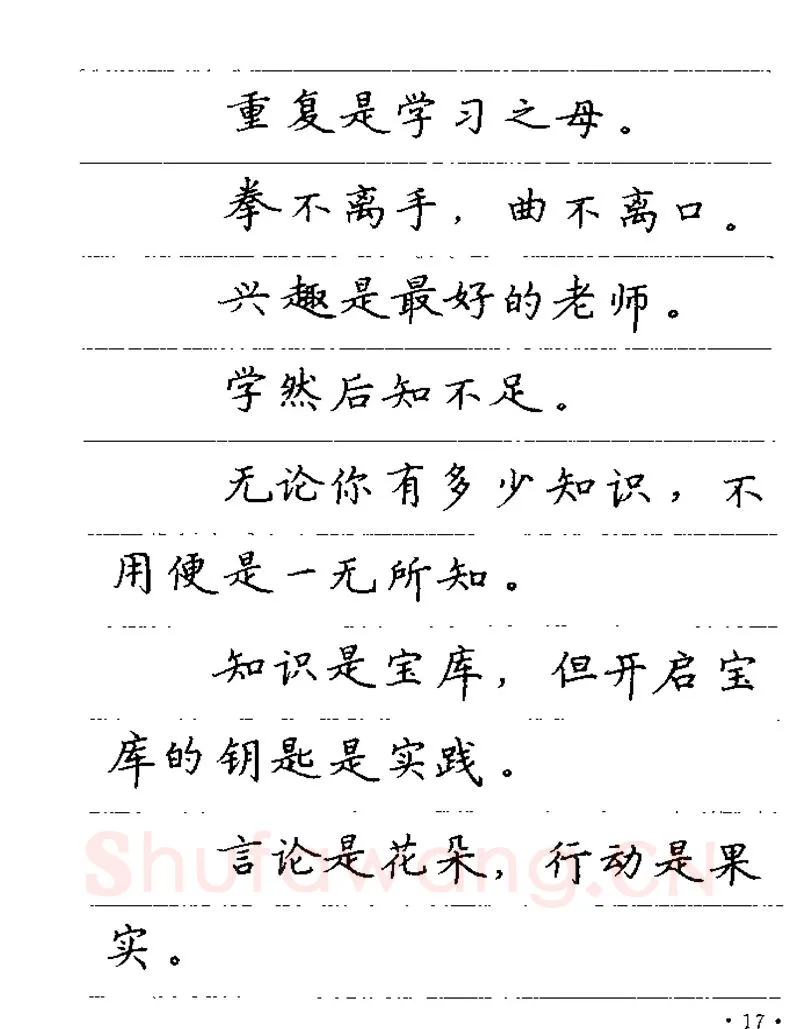 重复是学习之母。
拳不离手，曲不离口。
兴趣是最好的老师。
学然后知不足。
无论你有多少知识，不
用便是一无所知。
知识是宝库，但开启宝
库的钥匙是实践。
言论是花朵，行动是果
Shufawang.CN
实。
·17·